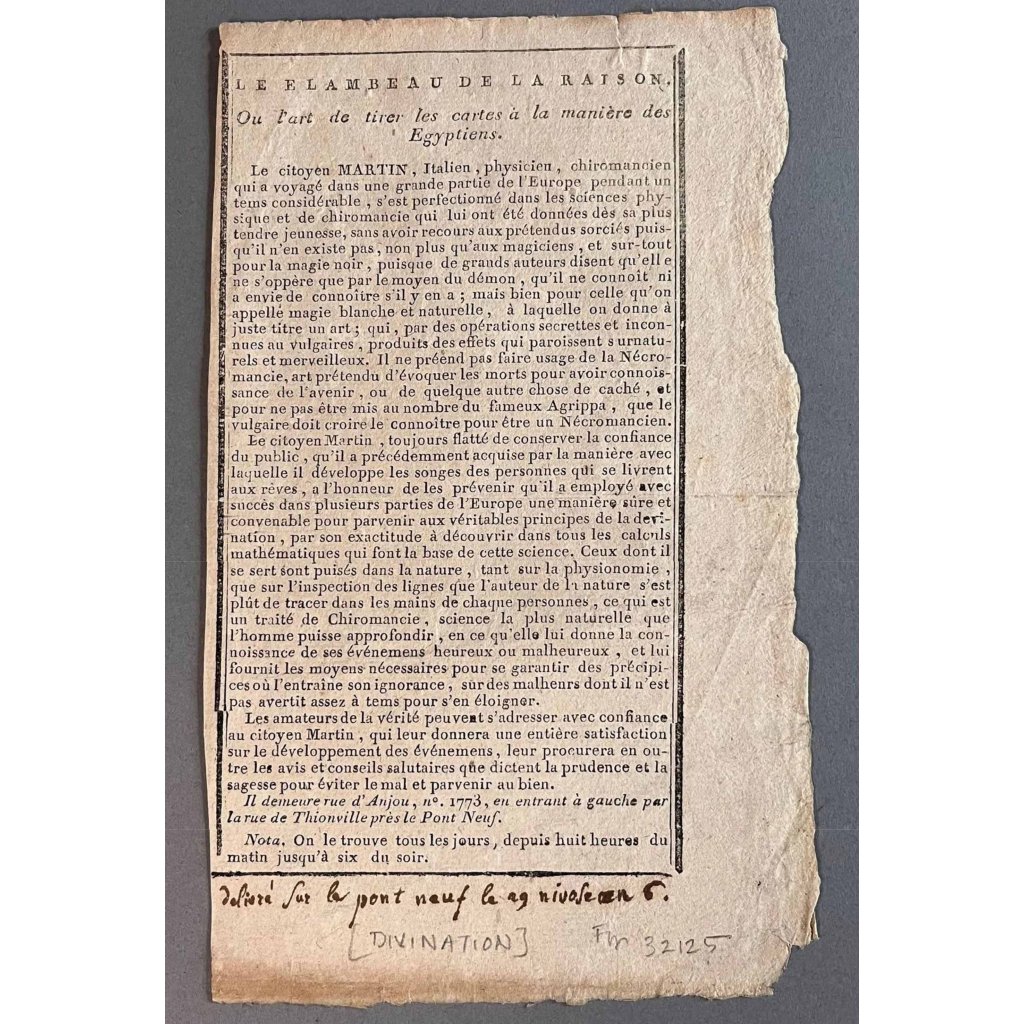 LE FLAMBEAU DE LA RAISON,
Ou l'art de tirer les cartes à la manière des
Egyptiens.
Le citoyen MARTIN, Italien, physicien, chiromancien
qui a voyagé dans une grande partie de l'Europe pendant un
tems considérable, s'est perfectionné dans les sciences phy-
sique et de chiromancie qui lui ont été données dès sa plus
tendre jeunesse, sans avoir recours aux prétendus sorciés puis-
qu'il n'en existe pas, non plus qu'aux magiciens, et sur-tout
pour la magie noir, puisque de grands auteurs disent qu'ell e
ne s'oppère que par le moyen du démon, qu'il ne connoît ni
a envie de connoître s'il y en a; mais bien pour celle qu'on
appellé magie blanche et naturelle, à laquelle on donne à
juste titre un art; qui, par des opérations secrettes et incon-
nues au vulgaires, produits des effets qui paroissent s urnatu-
rels et merveilleux. Il ne préend pas faire usage de la Nécro-
mancie, art prétendu d'évoquer les morts pour avoir connois-
sance de l'avenir, ou de quelque autre chose de caché, et
pour ne pas être mis au nombre du fameux Agrippa, que le
vulgaire doit croire le connoître pour être un Nécromancien.
Le citoyen Martin, toujours flatté de conserver la confiance
du public, qu'il a précédemment acquise par la manière avec
laquelle il développe les songes des personnes qui se livrent
aux rêves, a l'honneur de les prévenir qu'il a employé avec
succès dans plusieurs parties de l'Europe une manière sûre et
convenable pour parvenir aux véritables principes de la devi-
nation, par son exactitude à découvrir dans tous les calculs
mathématiques qui font la base de cette science. Ceux dont il
se sert sont puisés dans la nature, tant sur la physionomie,
que sur l'inspection des lignes que l'auteur de la nature s'est
plût de tracer dans les mains de chaque personnes, ce qui est
un traité de Chiromancie, science la plus naturelle que
l'homme puisse approfondir, en ce qu'elle lui donne la con-
noissance de ses événemens heureux ou malheureux, et lui
fournit les moyens nécessaires pour se garantir des précipi-
ces où l'entraîne son ignorance, sur des malheurs dont il n'est
pas avertit assez à tems pour s'en éloigner.
Les amateurs de la vérité peuvent s'adresser avec confiance
au citoyen Martin, qui leur donnera une entière satisfaction
sur le développement des événemens, leur procurera en ou-
tre les avis et conseils salutaires que dictent la prudence et la
sagesse pour éviter le mal et parvenir au bien.
Il demeure rue d'Anjou, nº. 1773, en entrant à gauche par
la rue de Thionville près le Pont Neuf.
Nota. On le trouve tous les jours, depuis huit heures du
matin jusqu'à six du soir.
delivré sur le pont neuf le 29 nivose an 6.
[DIVINATION] 32125